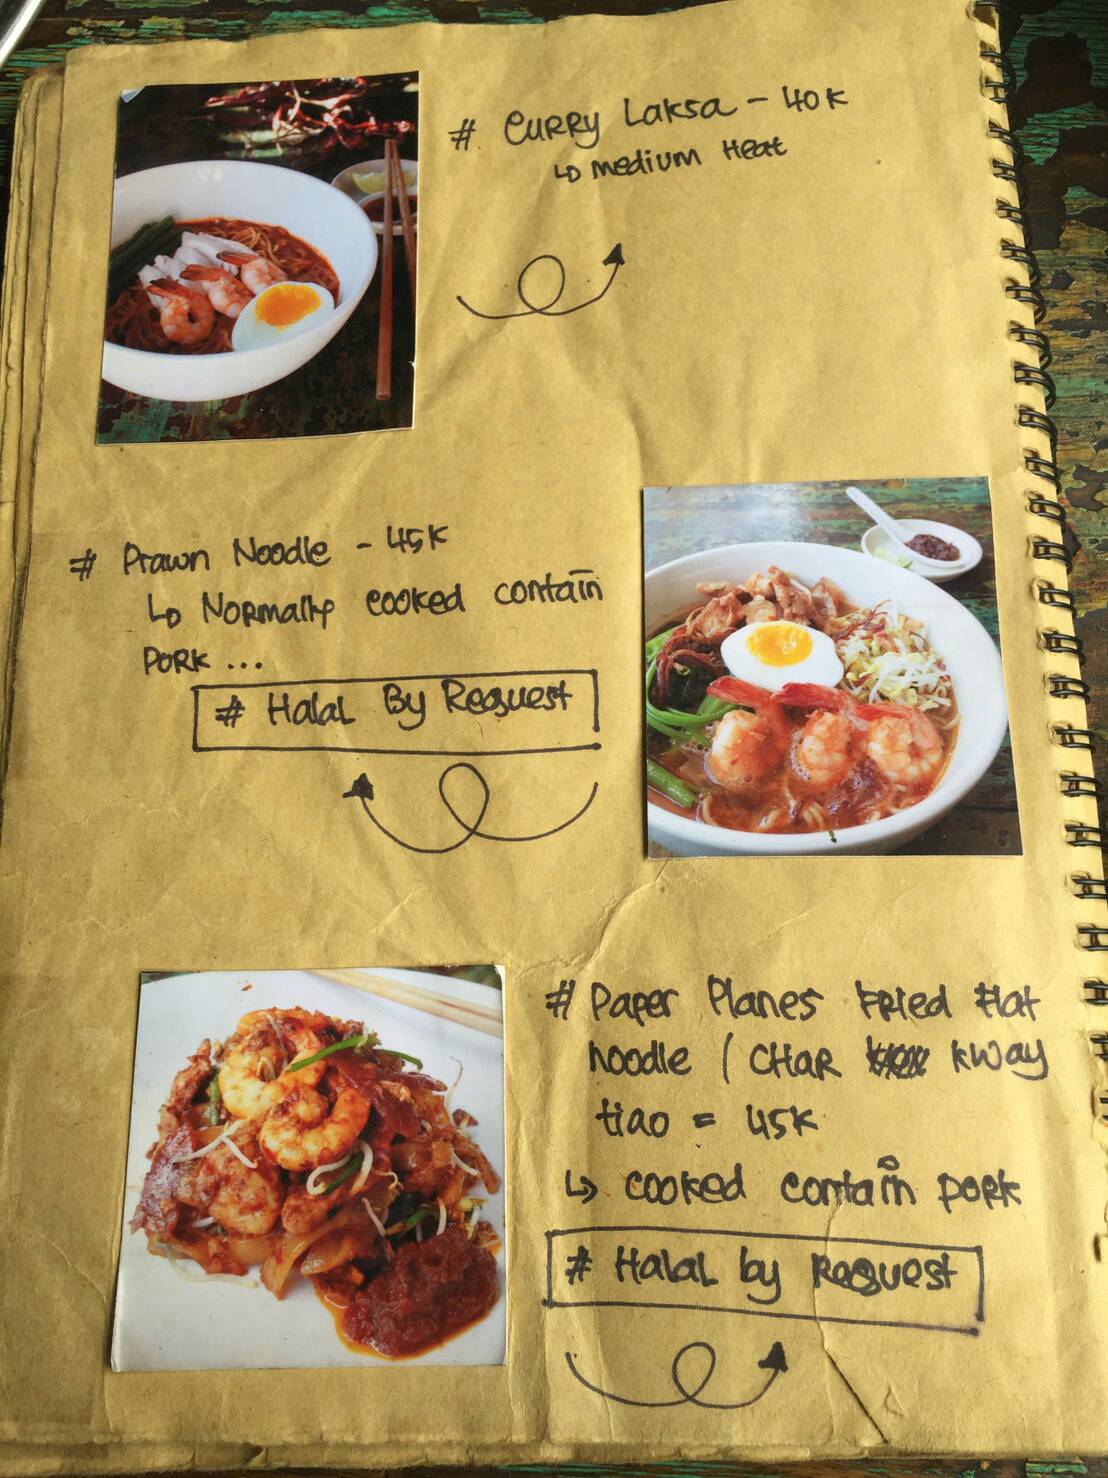 # Curry Laksa - 40K
↳ Medium Heat
# Prawn Noodle - 45K
↳ Normally cooked contain
Pork ...
# Halal By Request
# Paper Planes Fried Flat
Noodle / Char Kway
tiao = 45K
↳ cooked contain pork
# Halal by Request